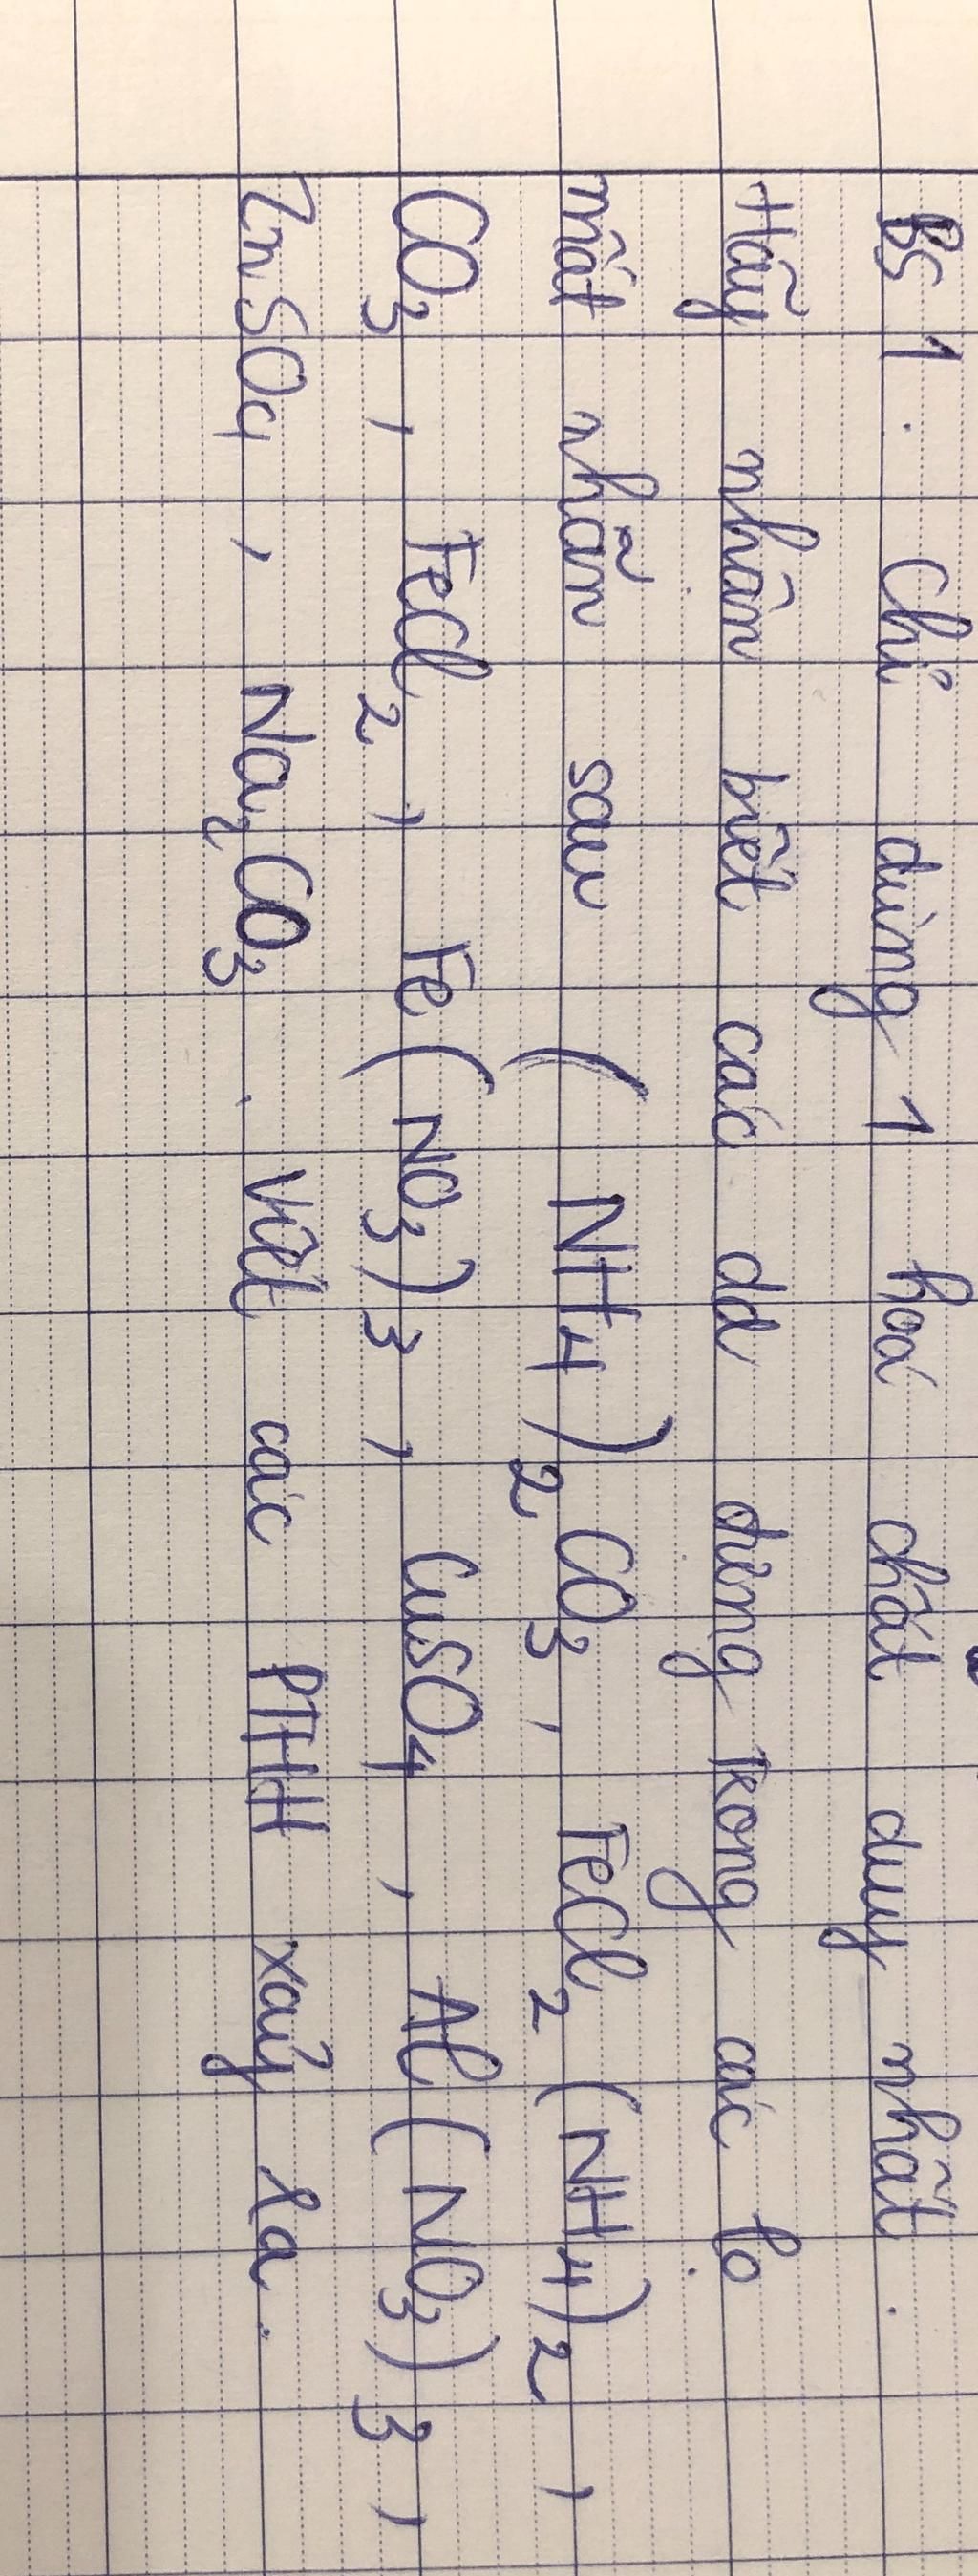 BS 1. Chỉ dùng 1 hoá chất duy nhất.
Hãy nhận biết các dd đựng trong các lọ
mất nhãn sau (NH4)2CO3, FeCl2(NH4)2,
CO3, FeCl2, Fe(NO3)3, CuSO4, Al(NO3)3,
ZnSO4, Na2CO3. Viết các PTHH xảy ra.